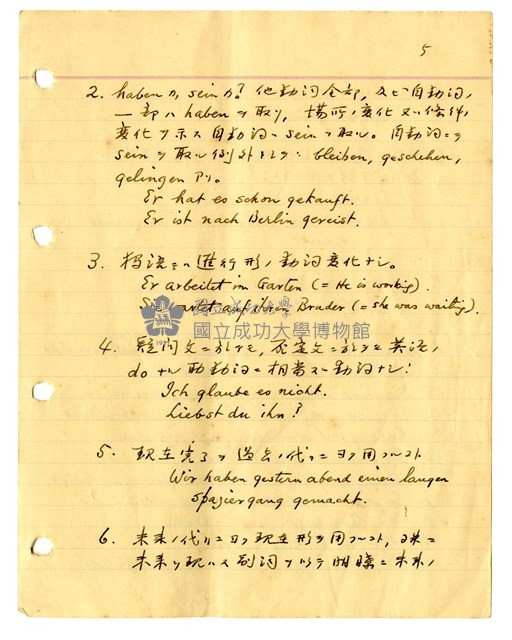 5
2. haben カ sein カ? 他動詞全部, 及ビ自動詞ノ
一部ハ haben ヲ取リ, 場所ノ変化又ハ條件ノ
変化ヲ示ス自動詞ハ sein ヲ取ル。自動詞ニテ
sein ヲ取ル例外トシテハ bleiben, geschehen,
gelingen アリ。
Er hat es schon gekauft.
Er ist nach Berlin gereist.
3. 独逸ニハ進行形ノ動詞変化ナシ。
Er arbeitet im Garten (= He is working).
Sie wartet auf ihren Bruder (= she was waiting).
國立成功大學
國立成功大學博物館
4. 疑問文ニ於テモ, 否定文ニ於テモ英語ノ
do ナル助動詞ニ相当スル動詞ナシ:
Ich glaube es nicht.
Liebst du ihn?
5. 現在完了ヲ過去ノ代リニヨク用フルコト
Wir haben gestern abend einen langen
Spaziergang gemacht.
6. 未来ノ代リニヨク現在形ヲ用フルコト, 殊ニ
未来ヲ現ハス副詞ヲ以テ明瞭ニ未来ノ